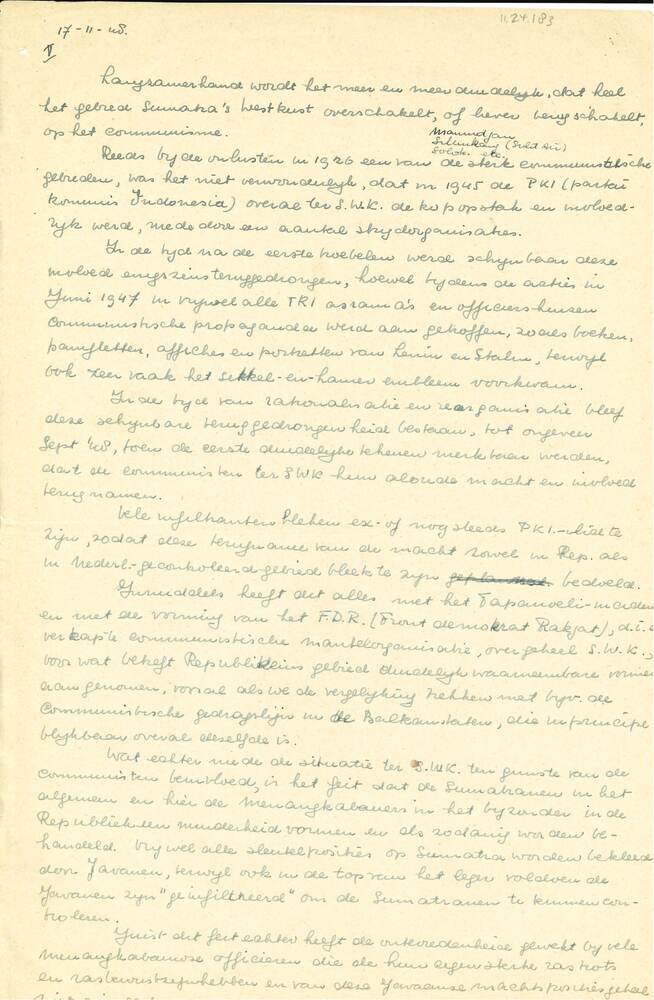 11.24.183
17-11-48.
V
Langzamerhand wordt het meer en meer duidelyk, dat heel
het gebied Sumatra's Westkust overschakelt, of liever terugschakelt,
op het communisme.
Manindjau
Silunkang (Sold Air)
Solok. etc.
Reeds by de onlusten in 1926 een van de sterk communistische
gebieden, was het niet verwonderlyk, dat in 1945 de PKI (partai
kommunis Indonesia) overal ter S.W.K. de kop opstak en invloed-
ryk werd, mede door een aantal strydorganisaties.
In de tyd na de eerste troebelen werd schynbaar deze
invloed enigszins teruggedrongen, hoewel tydens de acties in
Juni 1947 in vrywel alle TRI asrama's en officiershuizen
communistische propaganda werd aangetroffen, zoals boeken,
pamfletten, affiches en portretten van Lenin en Stalin, terwyl
ook zeer vaak het sikkel-en-hamer embleem voorkwam.
In de tyd van rationalisatie en reorganisatie bleef
deze schynbare teruggedrongenheid bestaan, tot ongeveer
Sept '48, toen de eerste duidelyke tekenen merkbaar werden,
dat de communisten ter SWK hun aloude macht en invloed
terugnamen.
Vele infiltranten bleken ex- of nog steeds PKI.-lid te
zyn, zodat deze terugname van de macht zowel in Rep. als
in Nederl.-gecontroleerd gebied bleek te zyn bedoeld.
Inmiddels heeft dit alles met het Tapanoeli-
en met de vorming van het F.D.R. (Front demokrat Rakjat), d.i.
verkapte communistische mantelorganisatie, over geheel S.W.K.,
voor wat betreft Republikeins gebied duidelyk waarneembare vormen
aangenomen, vooral als we de vergelyking trekken met byv. de
communistische gedragslyn in de Balkanstaten, die in principe
blykbaar overal dezelfde is.
Wat echter mede de situatie ter S.W.K. ten gunste van de
communisten beinvloed, is het feit dat de Sumatranen in het
algemeen en hier de Menangkabauers in het byzonder in de
Republiek een minderheid vormen en als zodanig worden be-
handeld. Vrywel alle sleutelposities op Sumatra worden bekleed
door Javanen, terwyl ook in de top van het leger voldoende
Javanen zyn "geinfiltreerd" om de Sumatranen te kunnen con-
troleren.
Juist dit feit echter heeft de ontevredenheid gewekt by vele
Menangkabause officieren die de hun eigen sterke rastrots
en rasbewustzyn hebben en van deze Javaanse machtsposities geheel